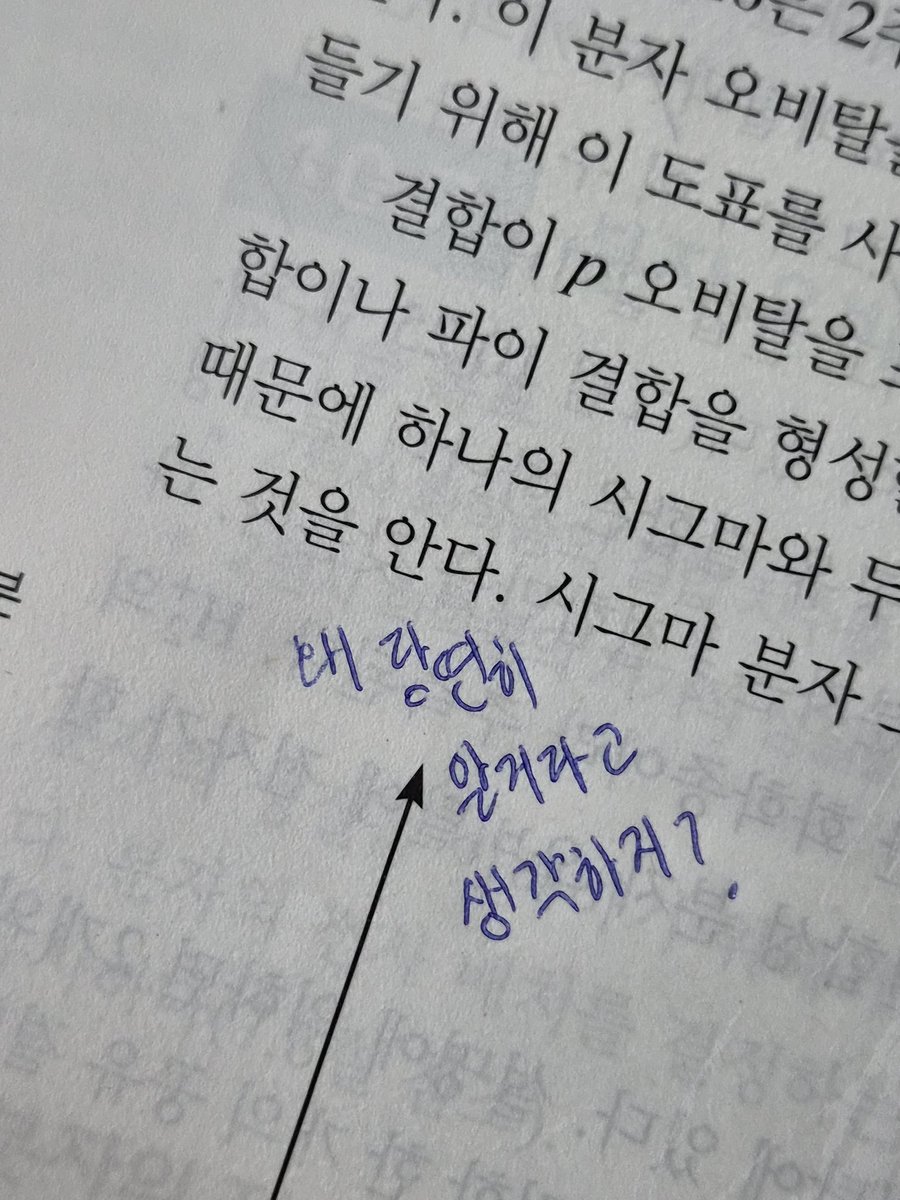 은 2주
. 이 분자 오비탈을
들기 위해 이 도표를 사
결합이 p 오비탈을
합이나 파이 결합을 형성
때문에 하나의 시그마와 두
는 것을 안다. 시그마 분자
왜 당연히
알거라고
생각하지?